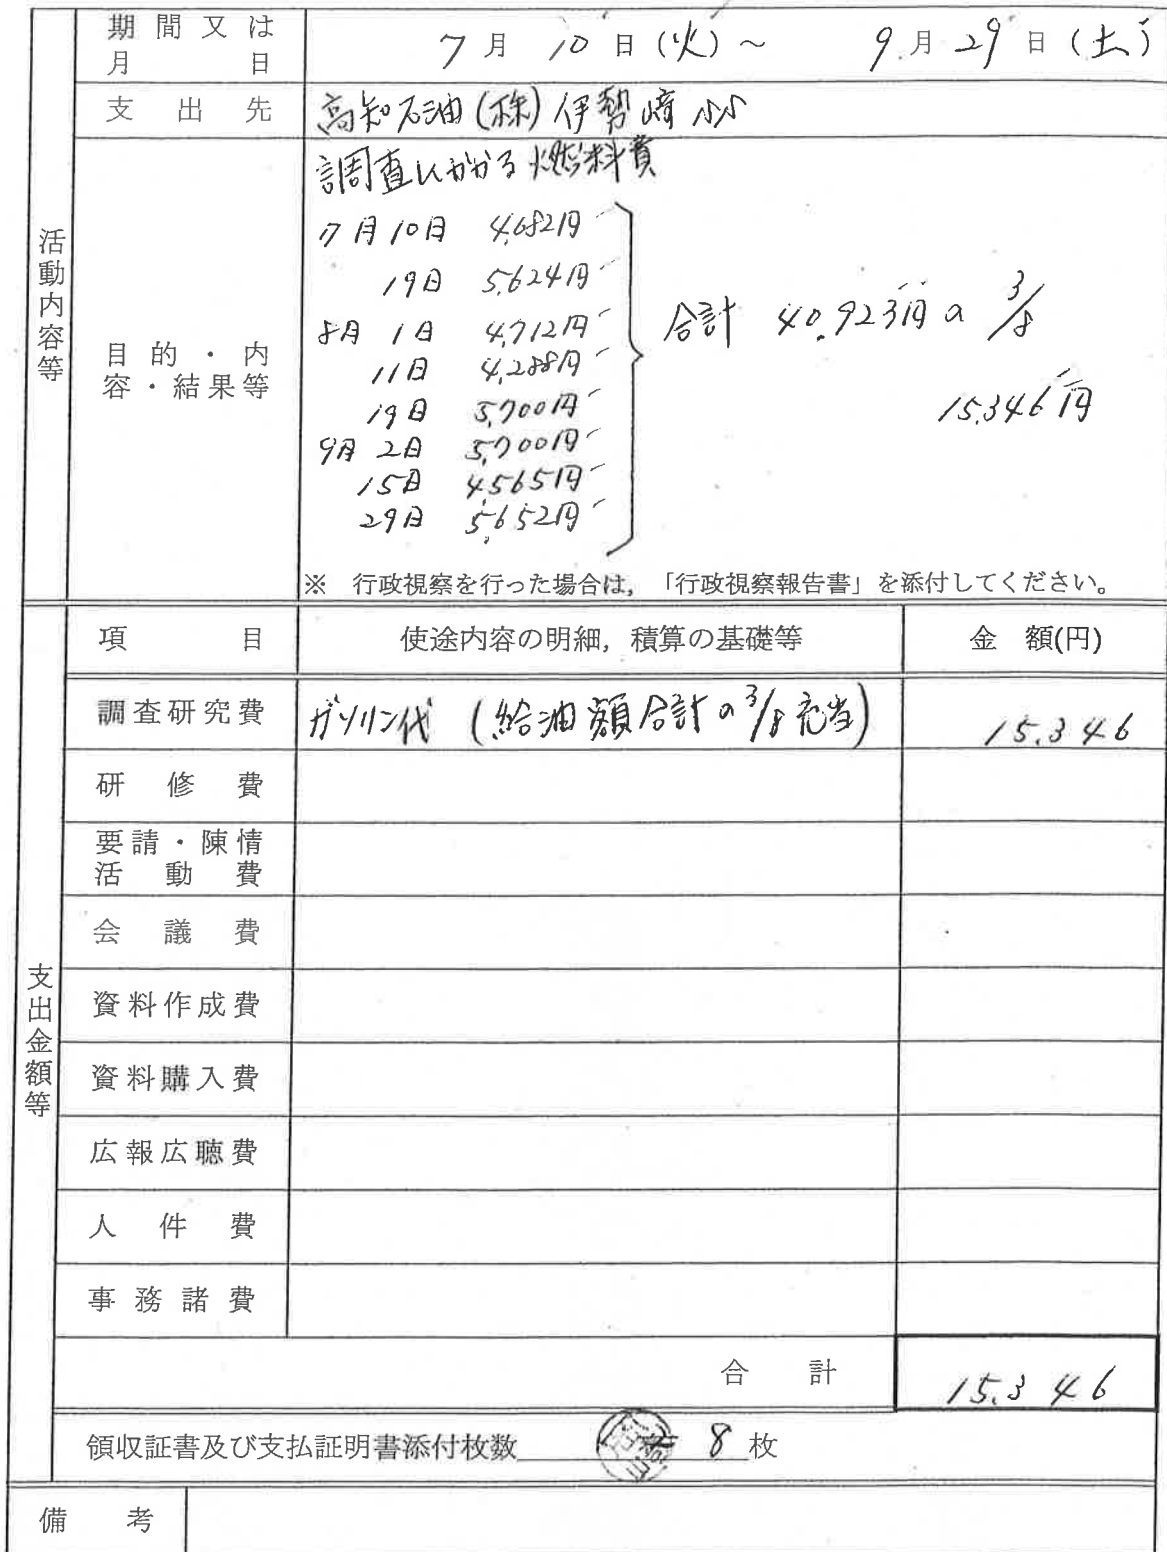 期間又は月日 7月10日(火)～ 9月29日(土)
支出先 高知石油(株)伊勢崎SS
活動内容等
目的・内容・結果等
調査にかかる燃料費
7月10日 4,682円
19日 5,624円
8月 1日 4,712円
11日 4,288円
19日 5,700円
9月 2日 5,700円
15日 4,565円
29日 5,652円
合計 40,923円の 3/8
15,346円
※ 行政視察を行った場合は,「行政視察報告書」を添付してください。
支出金額等
項目 使途内容の明細,積算の基礎等 金額(円)
調査研究費 ガソリン代 (給油額合計の3/8充当) 15,346
研修費
要請・陳情活動費
会議費
資料作成費
資料購入費
広報広聴費
人件費
事務諸費
合計 15,346
領収証書及び支払証明書添付枚数 8 枚
備考